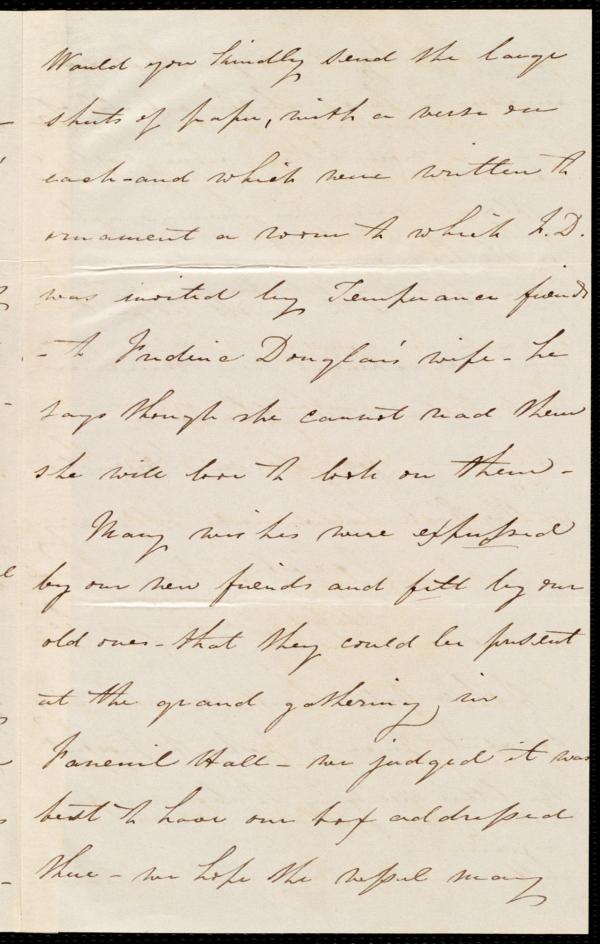 Would you kindly send the large
sheets of paper, with a verse on
each - and which were written to
ornament a room to which F.D.
was invited by Temperance friends
- to Frederic Douglass's wife - he
says though she cannot read them
she will love to look on them -
Many wishes were expressed
by our new friends and felt by our
old ones - that they could be present
at the grand gathering in
Faneuil Hall - we judged it was
best to have our box addressed
there - we hope the vessel may